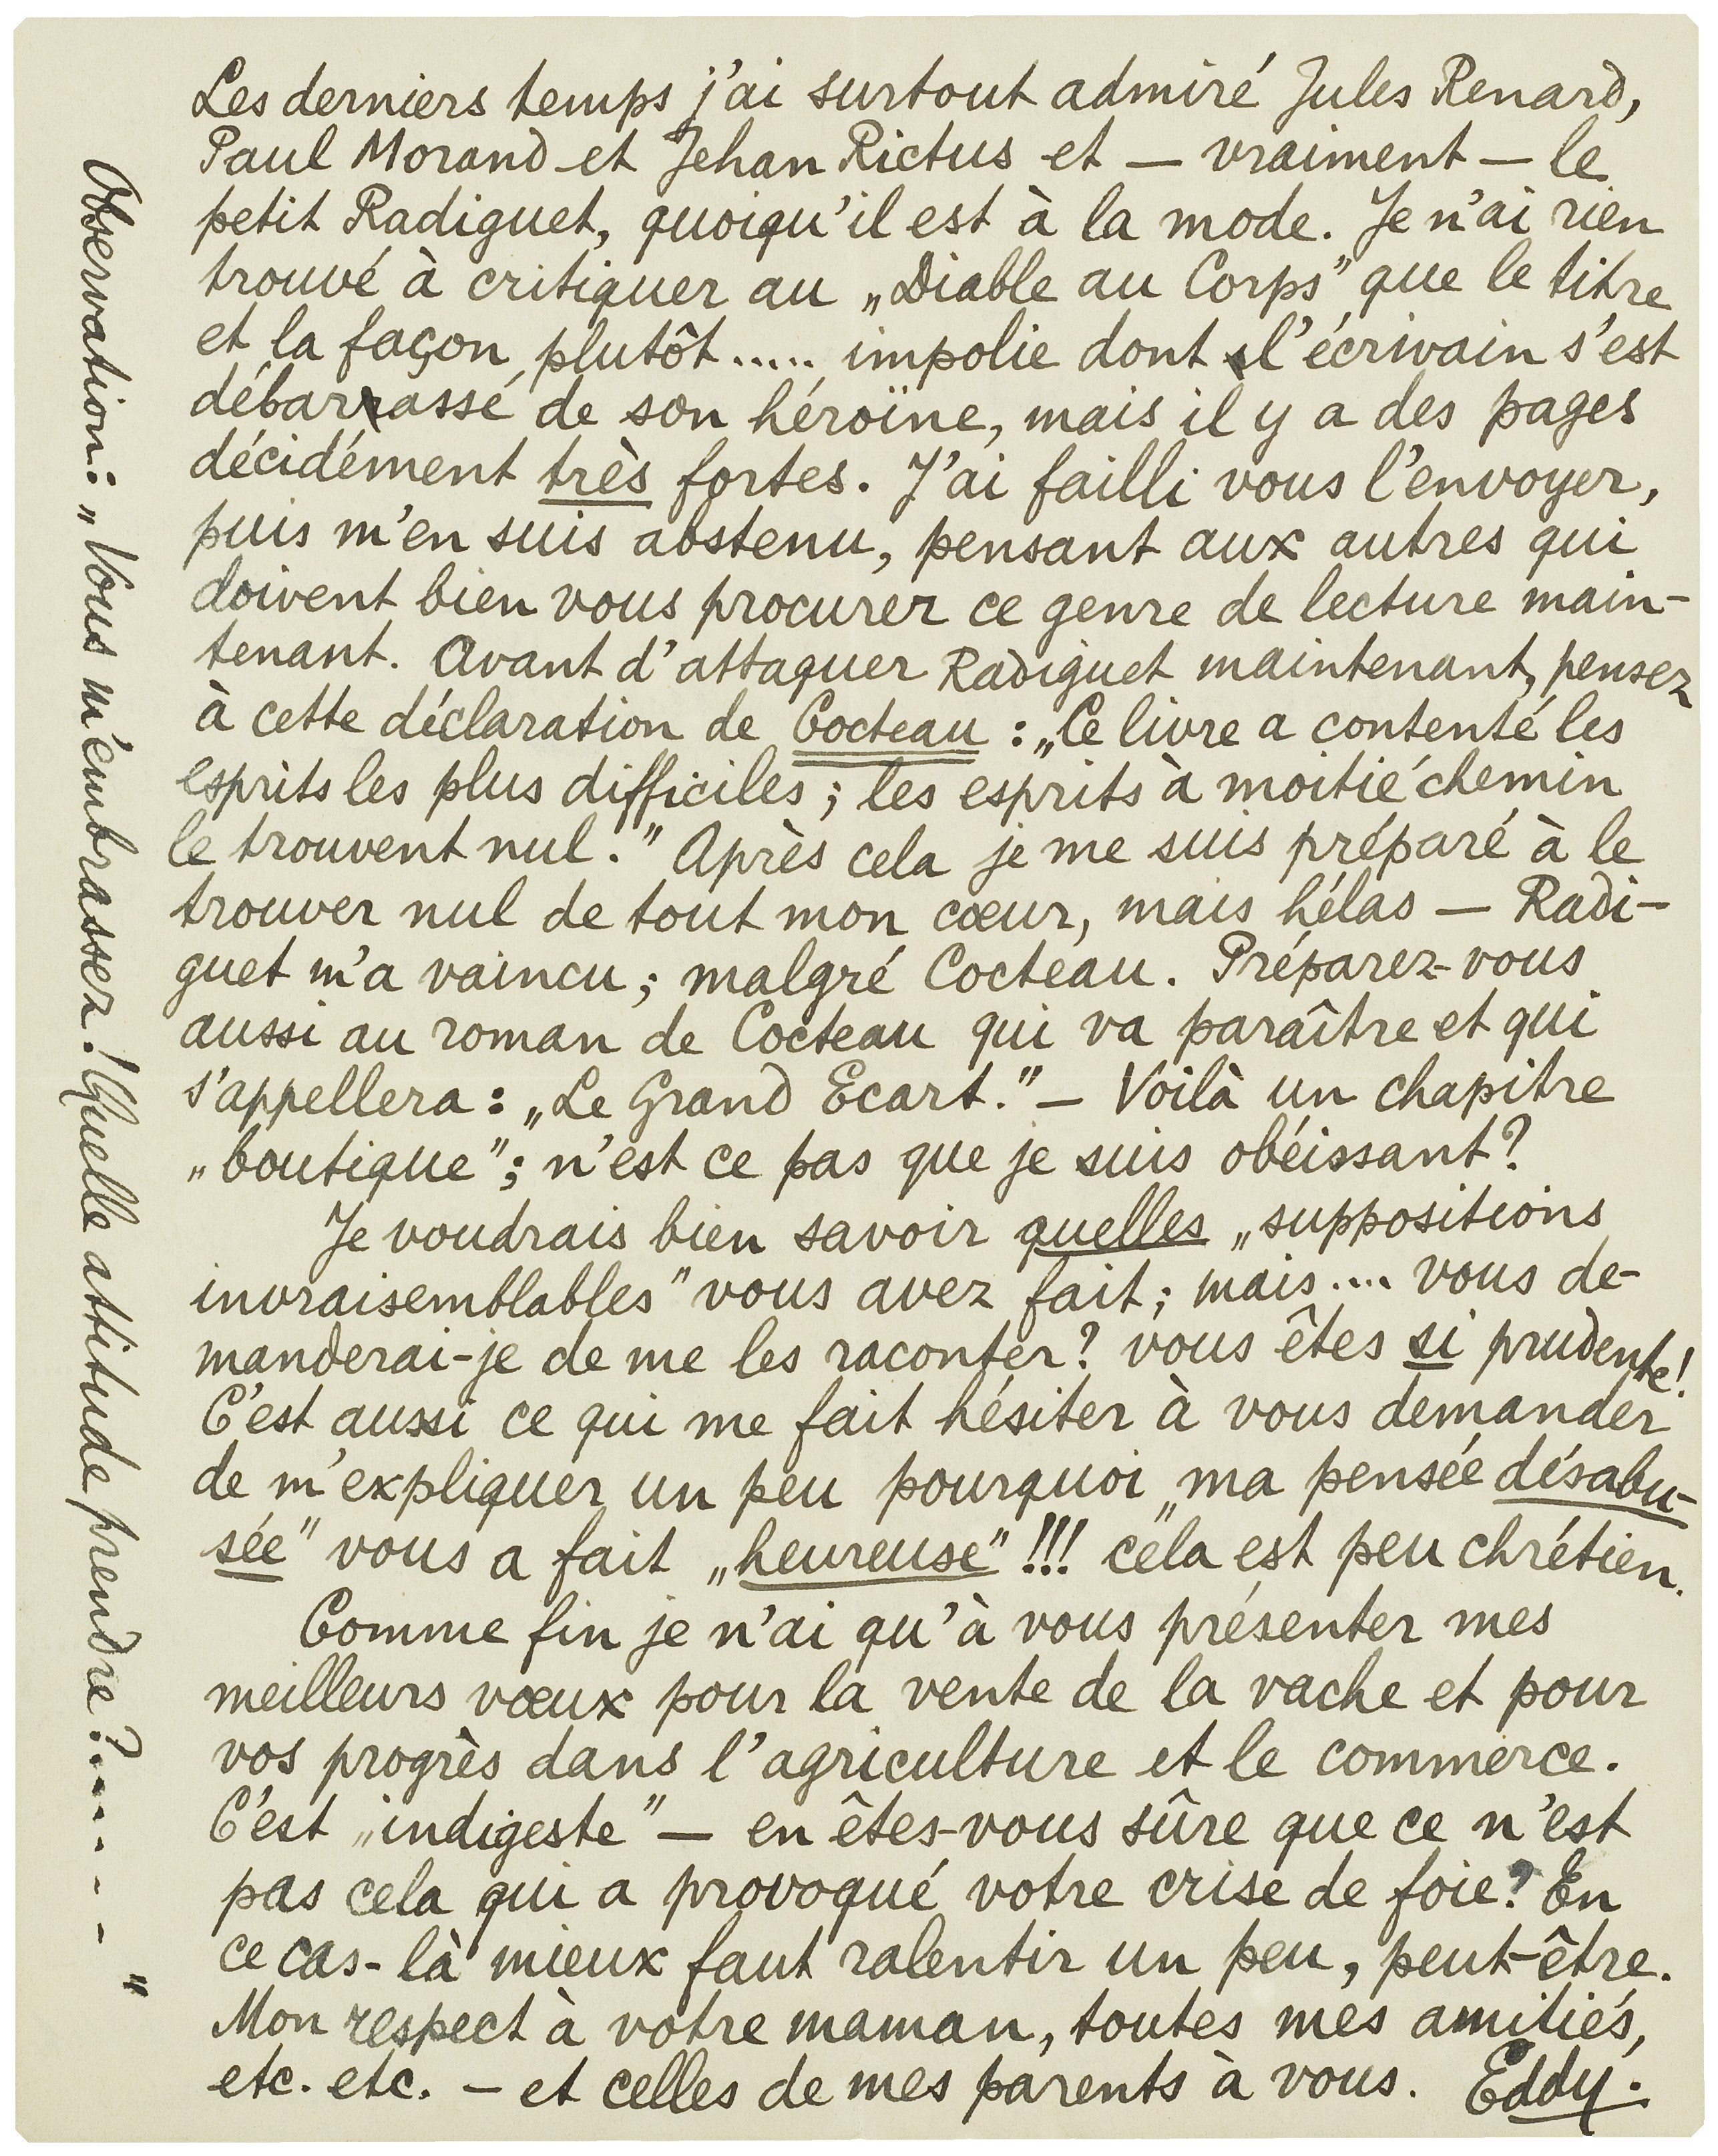 Les derniers temps j'ai surtout admiré Jules Renard,
Paul Morand et Jehan Rictus et — vraiment — le
petit Radiguet, quoiqu'il est à la mode. Je n'ai rien
trouvé à critiquer au „Diable au Corps" que le titre
et la façon plutôt..... impolie dont l'écrivain s'est
débarrassé de son héroïne, mais il y a des pages
décidément très fortes. J'ai failli vous l'envoyer,
puis m'en suis abstenu, pensant aux autres qui
doivent bien vous procurer ce genre de lecture main-
tenant. Avant d'attaquer Radiguet maintenant, pensez
à cette déclaration de Cocteau : „Ce livre a contenté les
esprits les plus difficiles ; les esprits à moitié chemin
le trouvent nul." Après cela je me suis préparé à le
trouver nul de tout mon cœur, mais hélas — Radi-
guet m'a vaincu ; malgré Cocteau. Préparez-vous
aussi au roman de Cocteau qui va paraître et qui
s'appellera : „Le Grand Ecart." — Voilà un chapitre
„boutique" ; n'est ce pas que je suis obéissant?
Je voudrais bien savoir quelles „suppositions
invraisemblables" vous avez fait ; mais .... vous de-
manderai-je de me les raconter? vous êtes si prudente!
C'est aussi ce qui me fait hésiter à vous demander
de m'expliquer un peu pourquoi „ma pensée désabu-
sée" vous a fait „heureuse" !!! cela est peu chrétien.
Comme fin je n'ai qu'à vous présenter mes
meilleurs vœux pour la vente de la vache et pour
vos progrès dans l'agriculture et le commerce.
C'est „indigeste" — en êtes-vous sûre que ce n'est
pas cela qui a provoqué votre crise de foie? En
ce cas-là mieux faut ralentir un peu, peut-être.
Mon respect à votre maman, toutes mes amitiés,
etc. etc. — et celles de mes parents à vous. Eddy.
Observation : „Vous m'embrassez ! Quelle attitude prendre ?....- - - "